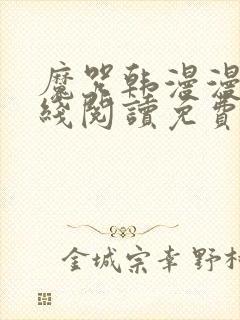 魔咒韩漫漫
线阅读免费
金城宗幸野村